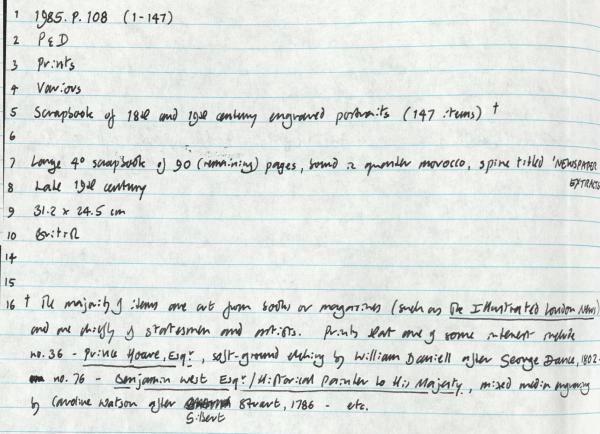 1 1985. P. 108 (1-147)
2 P & D
3 Prints
4 Various
5 Scrapbook of 18th and 19th century engraved portraits (147 items) †
6
7 Large 4° scrapbook of 90 (remaining) pages, bound in quarter morocco, spine titled 'NEWSPAPER
EXTRACTS
8 Late 19th century
9 31.2 x 24.5 cm
10 British
14
15
16 † The majority of items are cut from books or magazines (such as The Illustrated London News)
and are chiefly of statesmen and artists. Prints that are of some interest include
no. 36 - Prince Hoare, Esqr., soft-ground etching by William Daniell after George Dance, 1802.
no. 76 - Benjamin West Esqr / Historical Painter to His Majesty, mixed media engraving
by Caroline Watson after Gilbert Stuart, 1786 - etc.